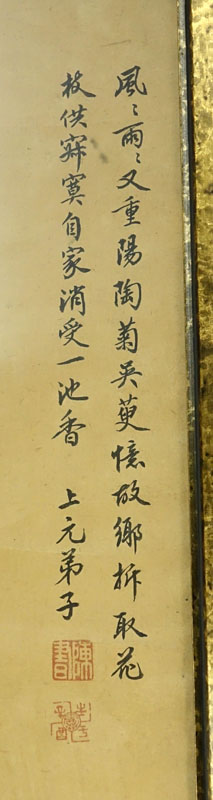 風〻雨〻又重陽陶菊吳萸憶故鄉折取花
枝供寂寞自家消受一池香 上元弟子
陳書